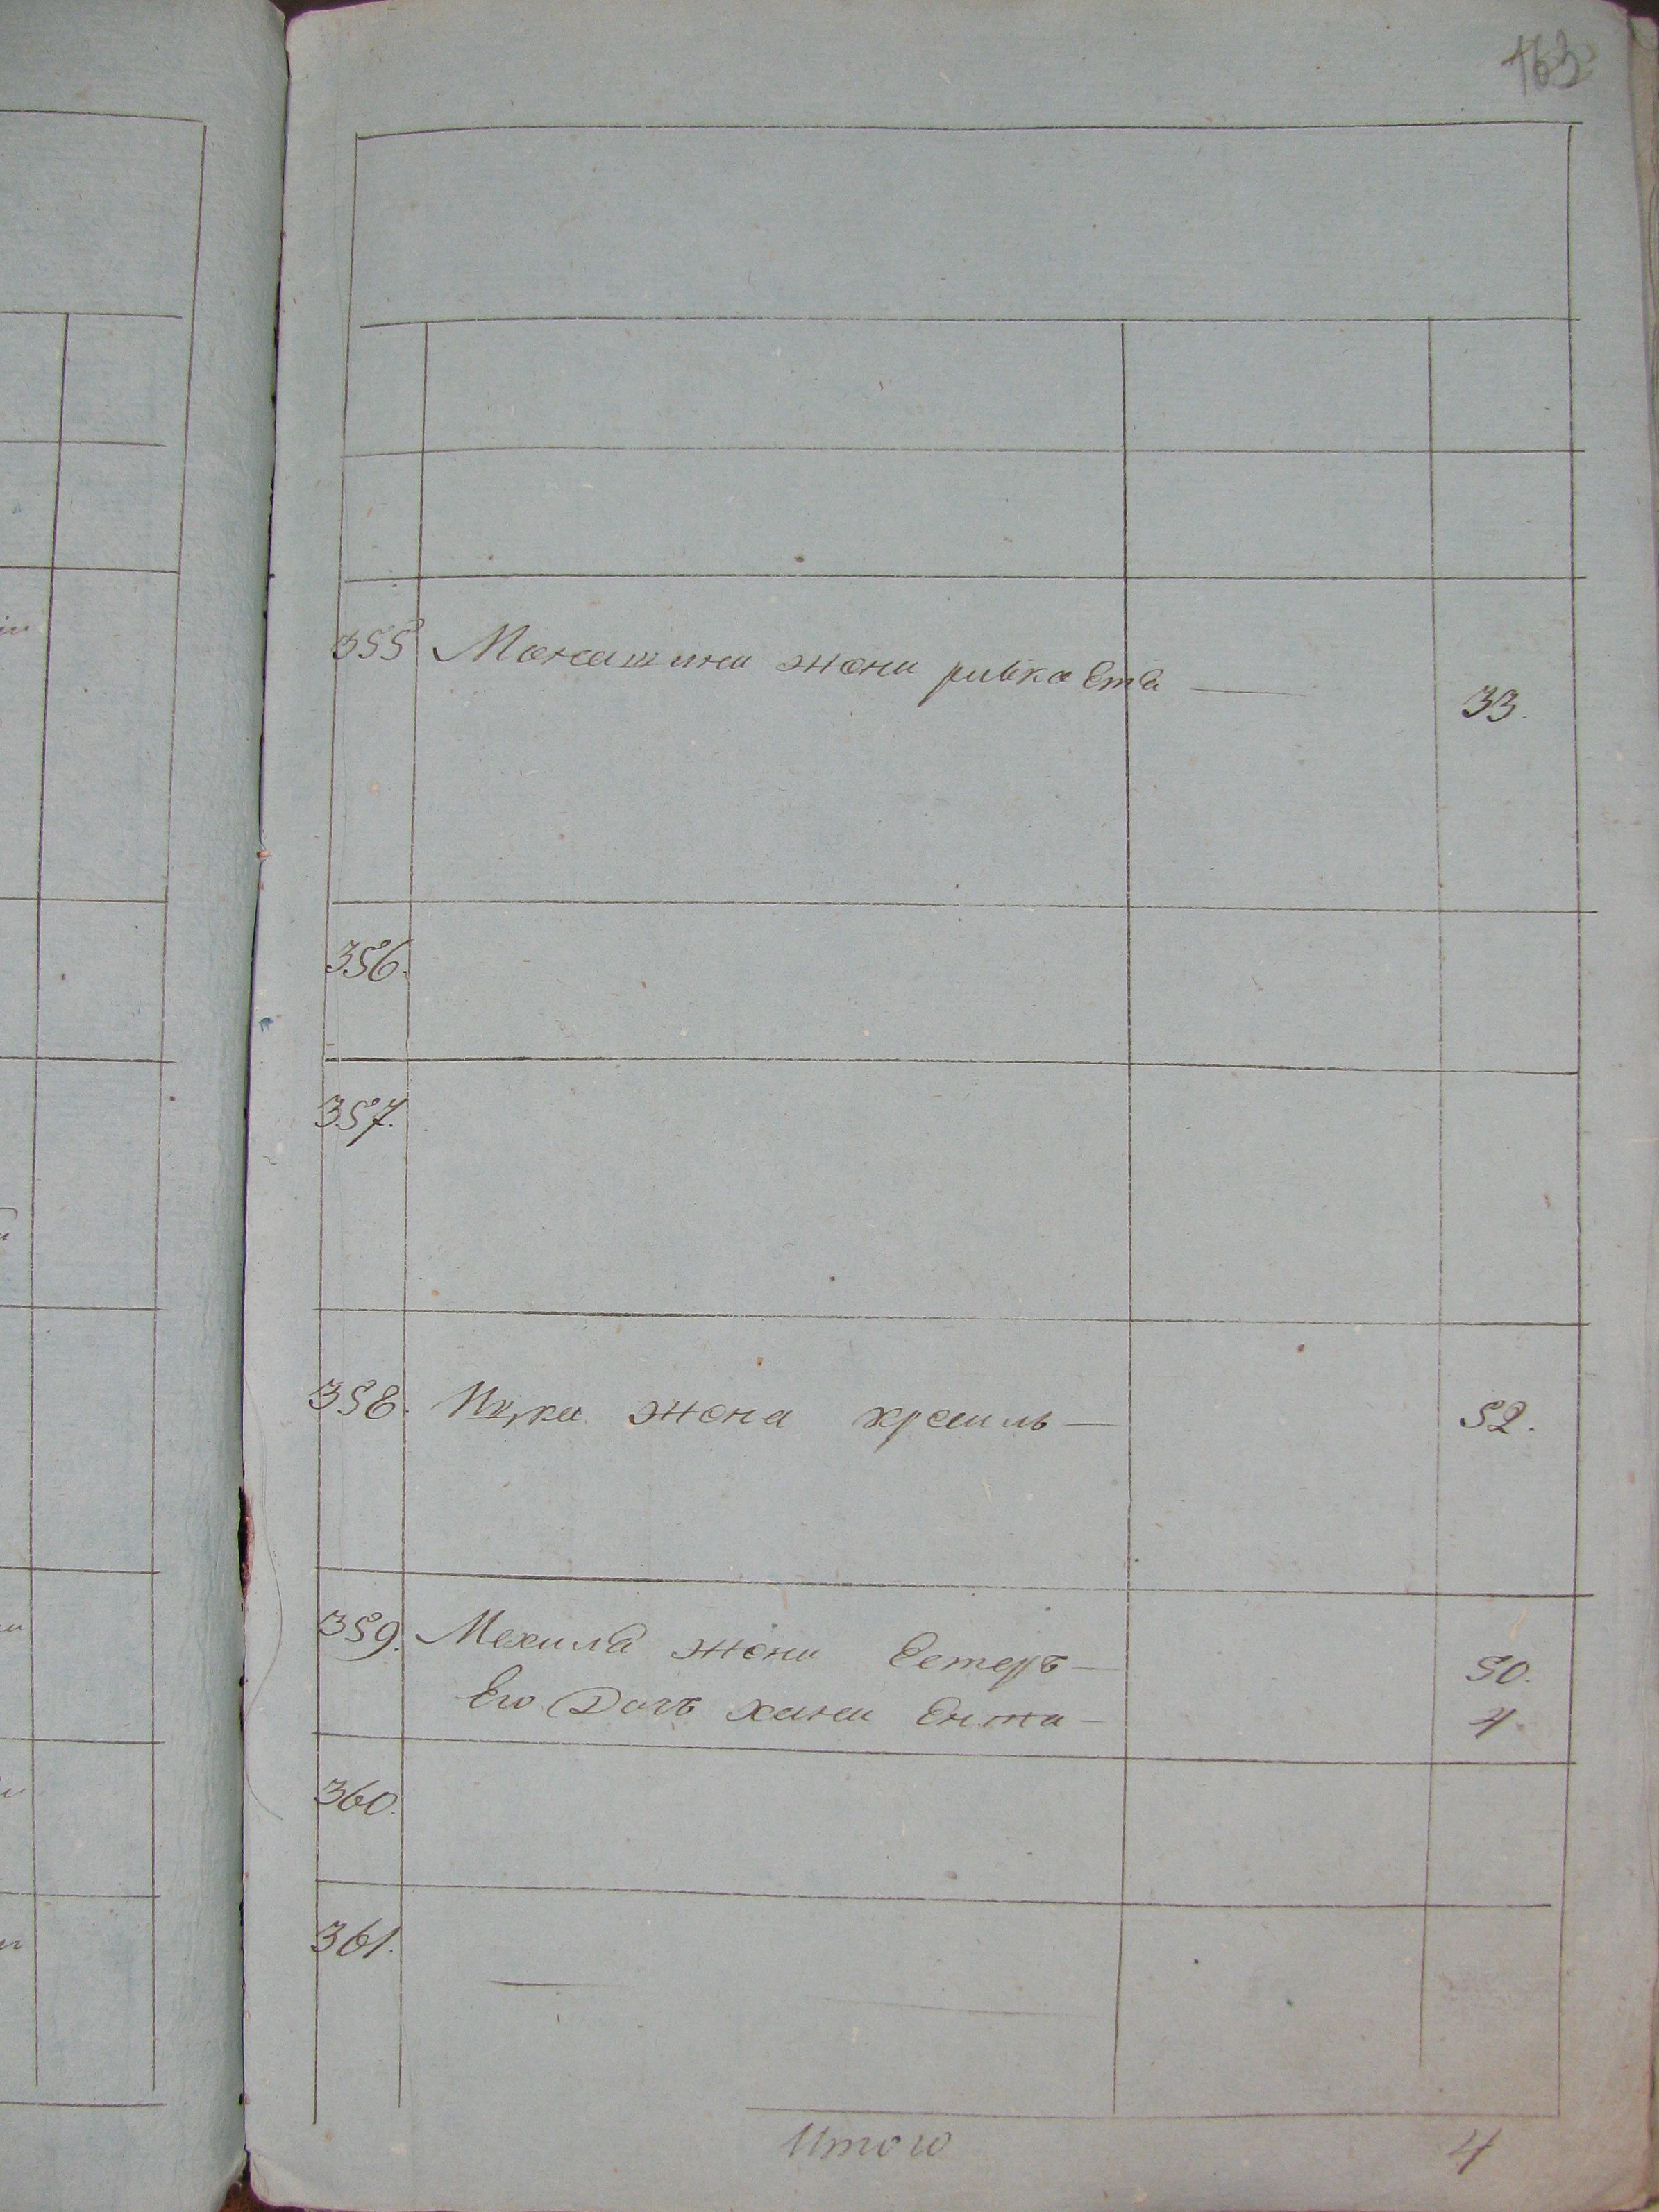 163
355 Монашина жена ривка Ета — 33.
356.
357.
358. Ицка жена храиль — 52.
359. Мехиля жена Естеръ — 50.
Его Дочь хана Ента — 4.
360.
361.
Итого 4